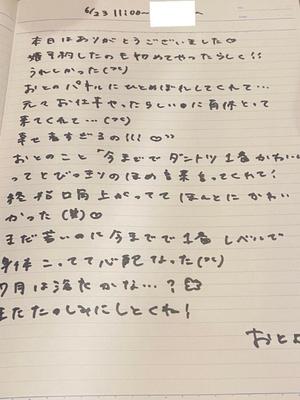 6/23 11:00~
本日はありがとうございました♡
予約したのも初めてやったらしく!!
うれしかった
おとのパネルにひとめぼれしてくれて…
元々お仕事やったらしいのに有休とって
来てくれて…
幸せ者すぎるの!!! ♡
おとのこと「今までダントツ1番かわいい
ってとびっきりのほめ言葉言ってくれて!
終始口角上がってて ほんとにかわい
かった(笑)♡
まだ若いのに今までで1番レベルで
身体こってて心配なった
7月は浴衣かな…?
またたのしみにしとくね!
おとよ